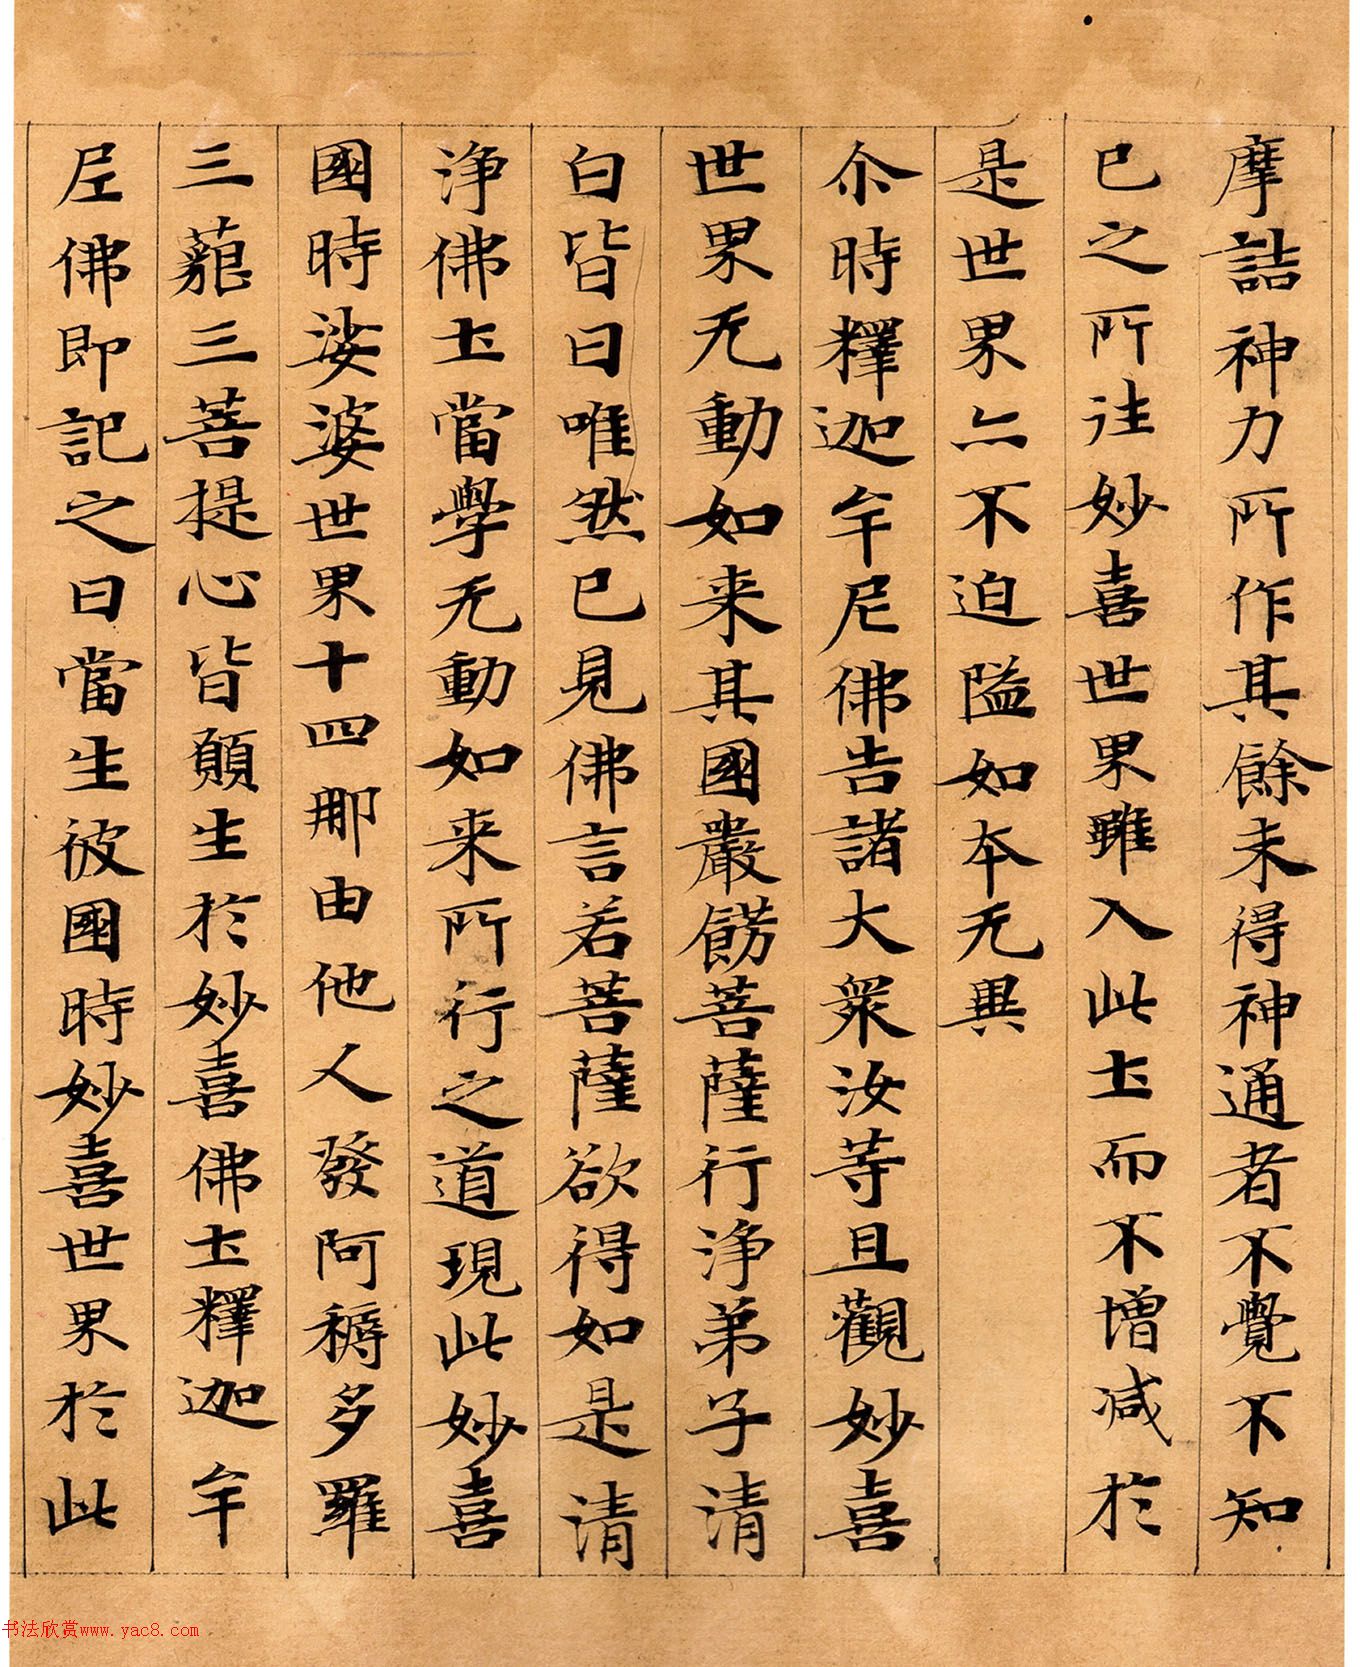 摩詰神力所作其餘未得神通者不覺不知
已之所往妙喜世界雖入此土而不增減於
是世界亦不迫隘如本无異
尒時釋迦牟尼佛告諸大眾汝等且觀妙喜
世界无動如来其國嚴餝菩薩行淨弟子清
白皆曰唯然已見佛言若菩薩欲得如是清
淨佛土當學无動如来所行之道現此妙喜
國時娑婆世界十四那由他人發阿耨多羅
三藐三菩提心皆願生於妙喜佛土釋迦牟
尼佛即記之曰當生彼國時妙喜世界於此
书法欣赏www.yac8.com